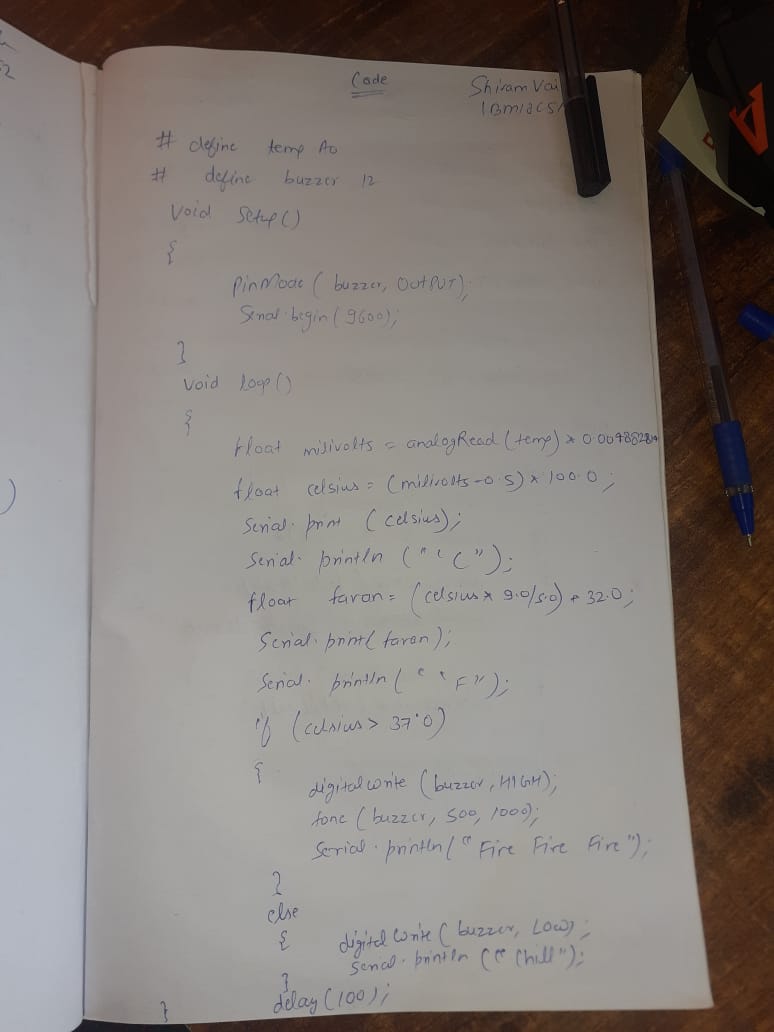 52
Code
Shiram Vai
1BM18CS1
# define temp A0
# define buzzer 12
void setup()
{
pinMode ( buzzer, OUTPUT);
Serial.begin(9600);
}
void loop()
{
float milivolts = analogRead (temp) *
float celsius = (milivolts-0.5) * 100.0 ;
Serial. print (celsius);
Serial. println (" ' C ");
float faran= (celsius * 9.0/5.0) + 32.0;
Serial. print( faran);
Serial. println ( " ' F");
if (celsius > 37.0)
{
digitalwrite (buzzer, HIGH);
tone (buzzer, 500, 1000);
Serial . println (" Fire Fire Fire ");
}
else
{ digitalwrite ( buzzer, LOW) ;
Serial. println (" Chill");
}
delay (100);
}